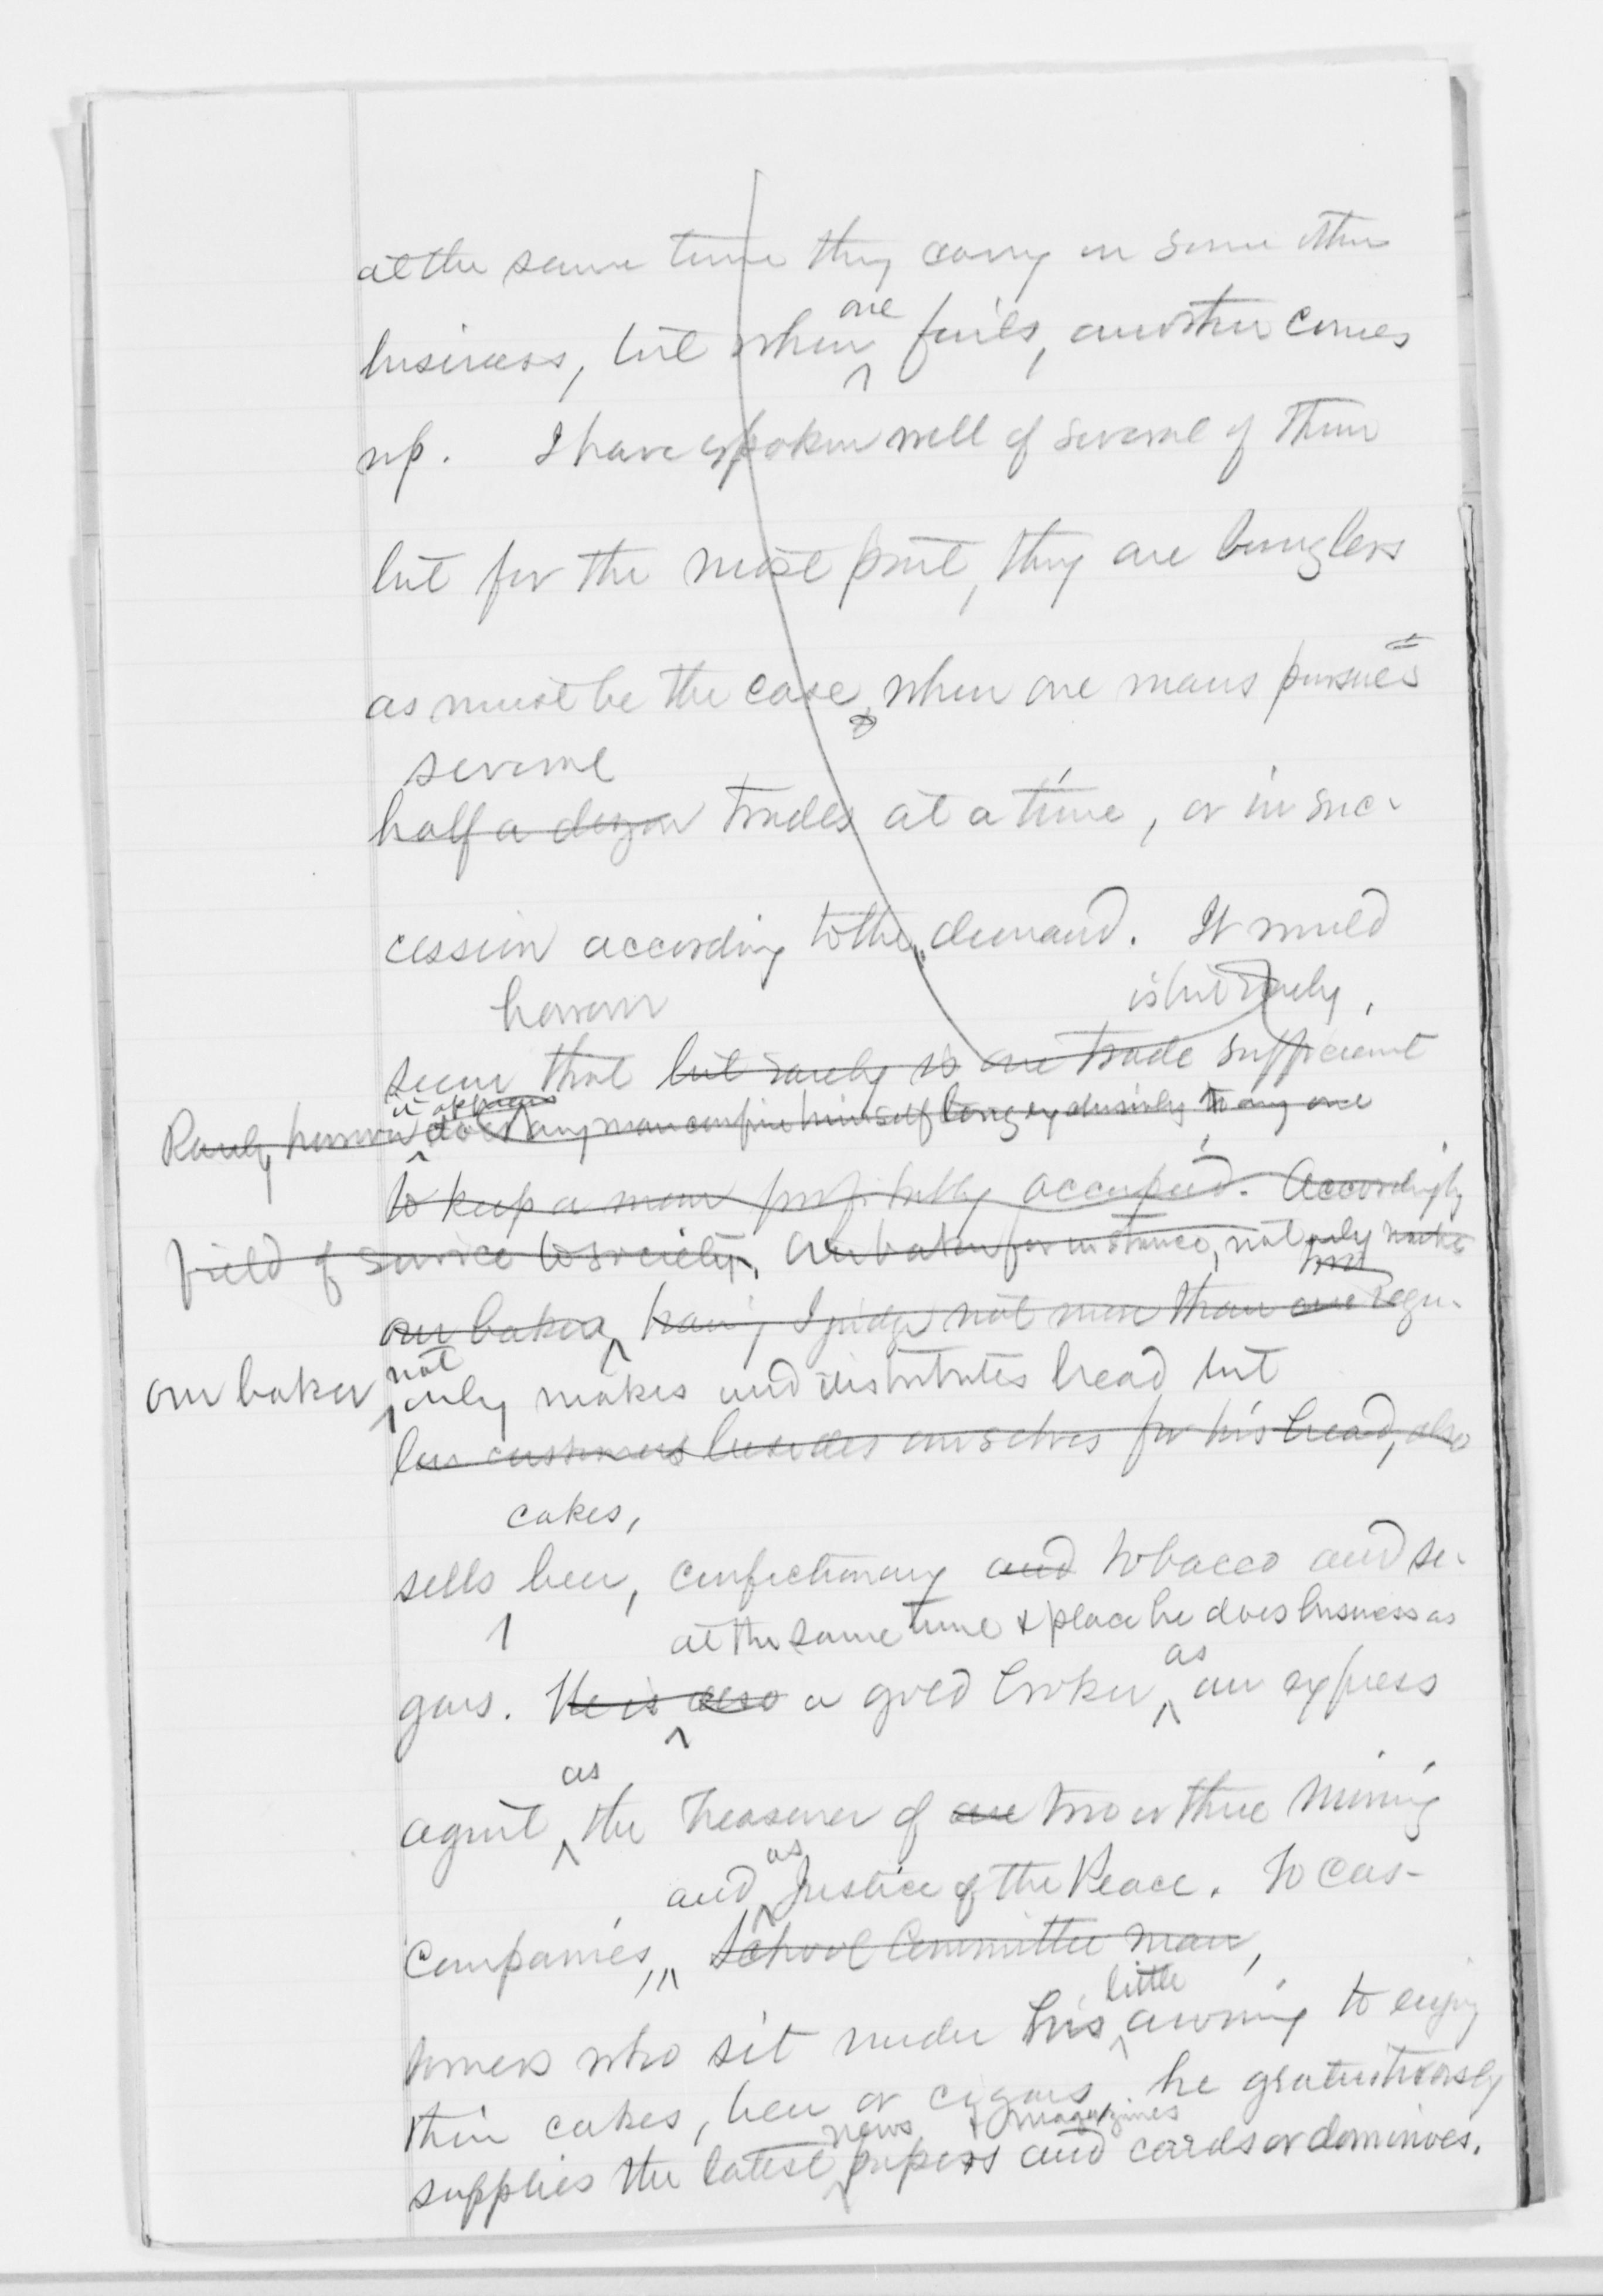 at the same time they carry on some other
one
business, but when fails, another comes
up. I have spoken well of several of them
but for the most part, they are bunglers
as must be the case, when one mans pursues
several
half a dozen trades at a time, or in suc-
cession according to the demand. It would
however is but rarely,
seem that but rarely is one trade sufficient
it appears
Rarely however does any man confine himself long exclusively to any one
to keep a man profitably occupied. Accordingly
field of service to society. Our baker for instance, not only makes
two
our baker, having I judge not more than one regu-
not
our baker only makes and distributes bread but
lar customers besides ourselves for his bread, also
cakes,
sells beer, confectionary and tobacco and se-
at the same time & place he does business as
as
gars. He is also a gold broker an express
as
agent the Treasurer of one two or three Mining
as
and Justice of the Peace. To cus-
Companies, School Committee man,
little
tomers who sit under his awning to enjoy
their cakes, beer or cigars he gratuitously
news & magazines
supplies the latest papers and cards or dominoes.